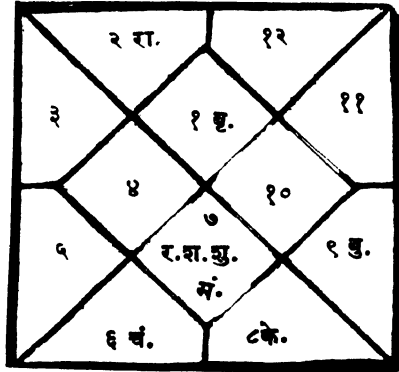 २ रा.
१२
३
१ बृ.
११
४
१०
७
५
र.श.शु.
९ बु.
मं.
६ चं.
८के.